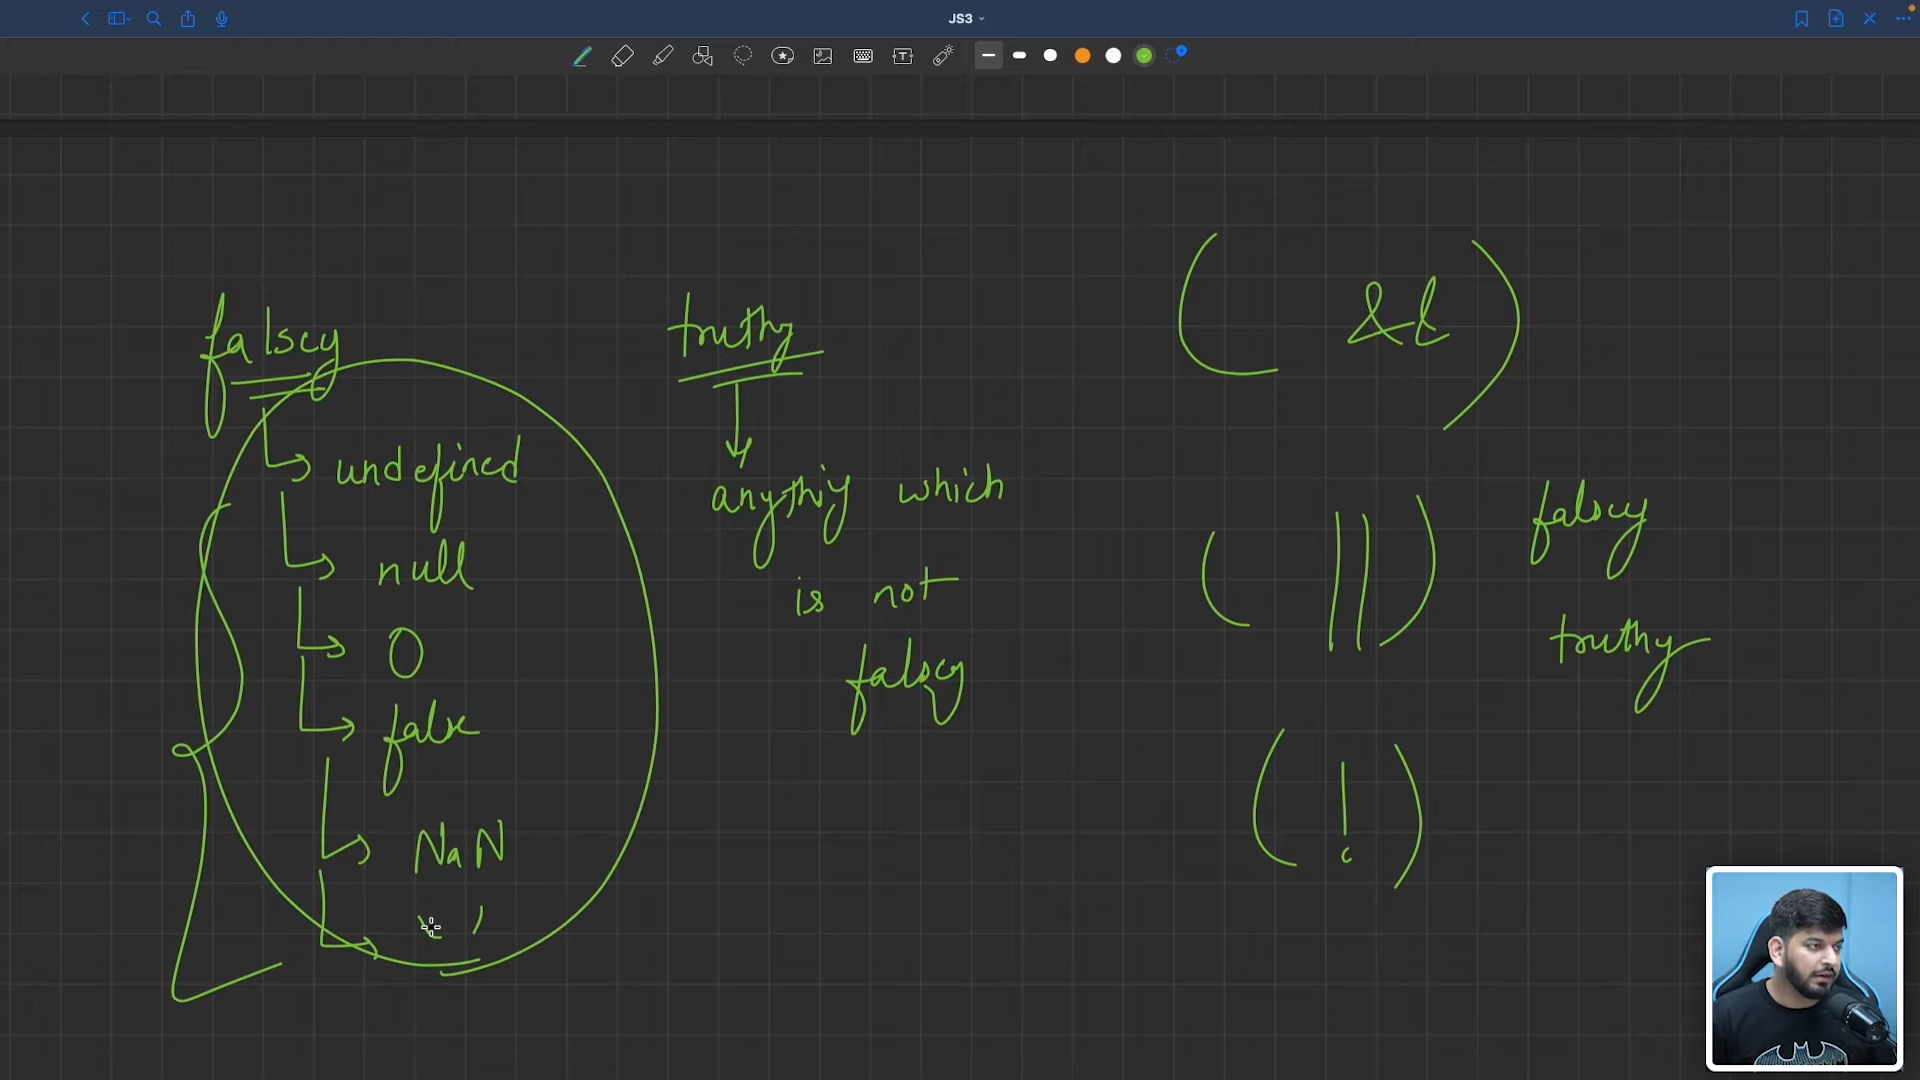 JS3
falscy
undefined
null
0
false
NaN
' '
truthy
anythiy which
is not
falscy
( && )
( || )
falscy
truthy
( ! )